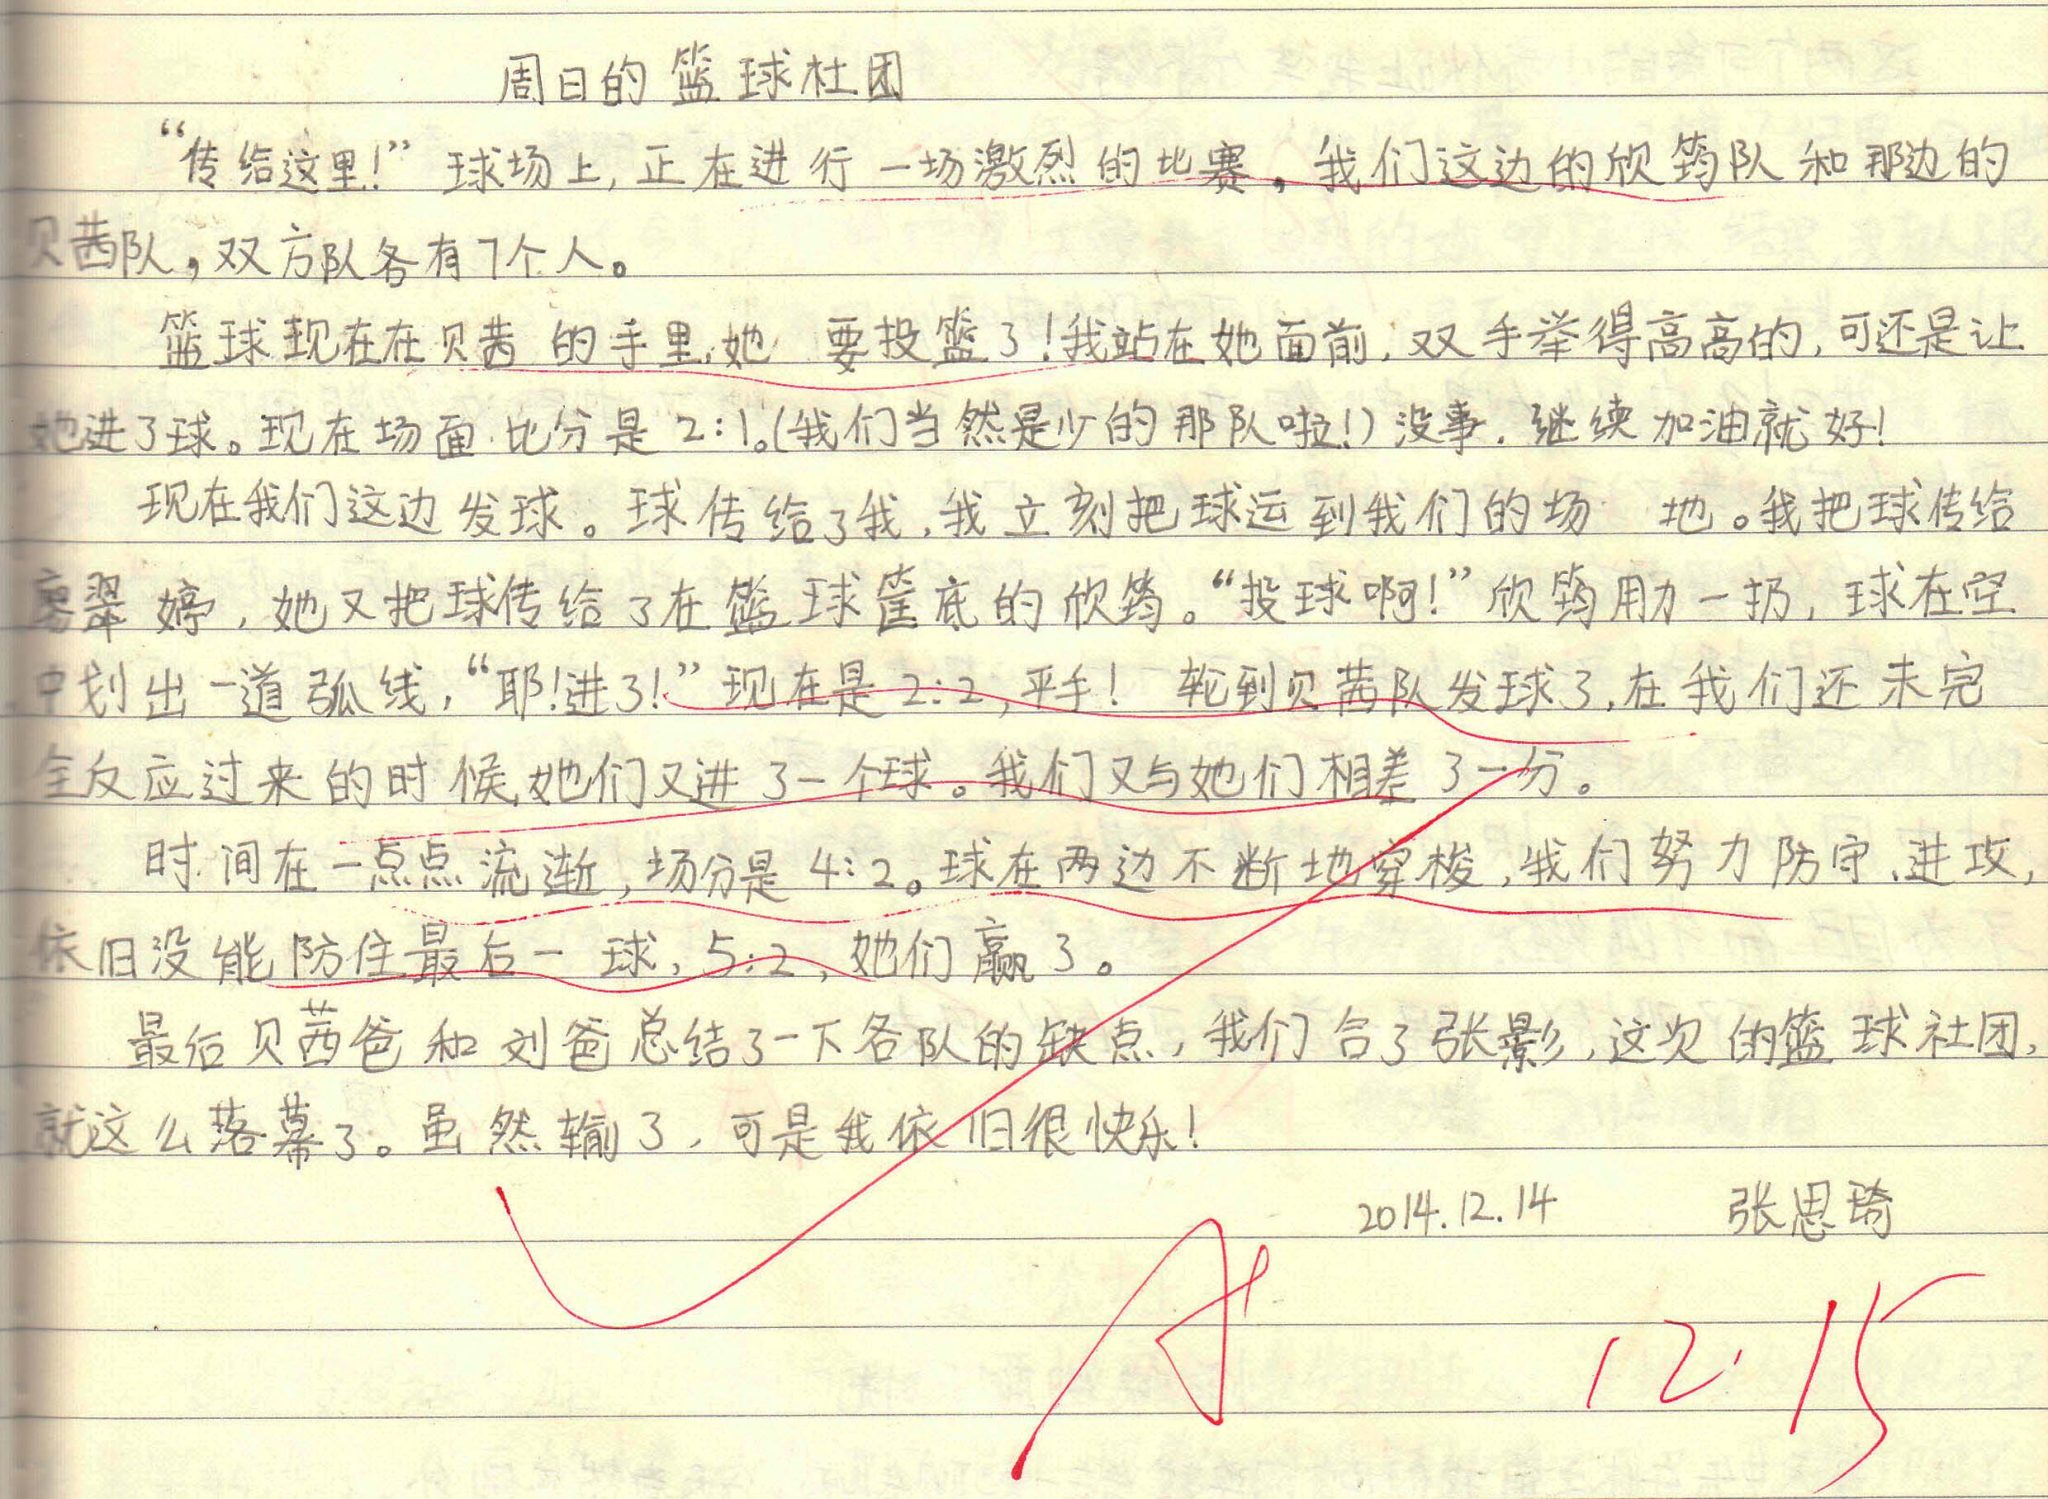 周日的篮球杜团
“传给这里!”球场上,正在进行一场激烈的比赛,我们这边的欣筠队和那边的
贝茜队,双方队各有7个人。
篮球现在在贝茜的手里,她 要投篮了!我站在她面前,双手举得高高的,可还是让
她进了球。现在场面比分是2:1。(我们当然是少的那队啦!)没事,继续加油就好!
现在我们这边发球。球传给了我,我立刻把球运到我们的场 地。我把球传给
翠婷,她又把球传给了在篮球筐底的欣筠。“投球啊!”欣筠用力一扔,球在空
中划出一道弧线,“耶!进了!”现在是2:2,平手! 轮到贝茜队发球了,在我们还未完
全反应过来的时候,她们又进了一个球。我们又与她们相差了一分。
时间在一点点流逝,场分是4:2。球在两边不断地穿梭,我们努力防守、进攻,
依旧没能防住最后一球,5:2,她们赢了。
最后贝茜爸和刘爸总结了一下各队的缺点,我们合了张影,这次的篮球社团,
就这么落幕了。虽然输了,可是我依旧很快乐!
2014.12.14 张思琦
A+ 12.15